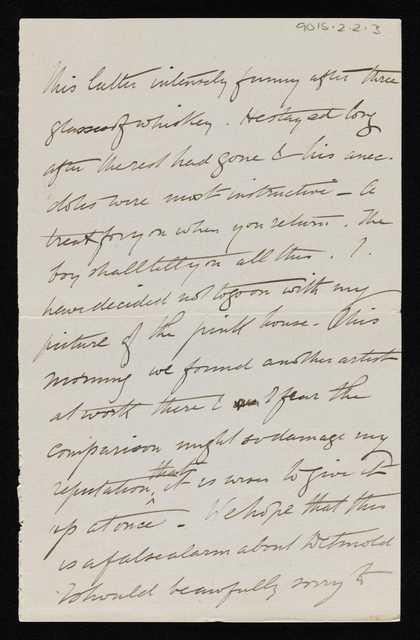 9015-2-2-3
this latter intensely funny after three
glasses of whiskey. He stayed long
after the rest had gone & his anec-
dotes were most instructive - A
treat for you when you return. The
boy shall tell you all this. I
have decided not to go on with my
picture of the pink house - This
morning we found another artist
at work there & I fear the
comparison might so damage my
reputation, that it is wiser to give it
up at once - We hope that this
is a false alarm about Detmold
I should be awfully sorry to